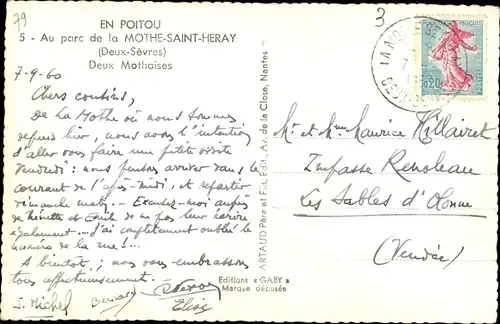 79
EN POITOU
5 - Au parc de la MOTHE-SAINT-HERAY
(Deux-Sèvres)
Deux Mothaises
7-9-60
Chers cousins,
De La Mothe où nous sommes
depuis hier, nous avons l'intention
d'aller vous faire une petite visite
vendredi : nous pensons arriver dans le
courant de l'après-midi, et repartir
dimanche matin. - Excusez-moi auprès
de et Emile de ne pas leur écrire
également ---- J'ai complètement oublié le
numéro de la rue ! ...
A bientôt ; nous vous embrassons
tous affectueusement.
J. Michel Bernard
Elise
ARTAUD Père et Fils, Edit. Av. de la Close, Nantes -
Editions « GABY »
Marque déposée
3
0,20
Mr et Mme Maurice Hillairet
Impasse Renoleau
Les Sables d'Olonne
(Vendée)